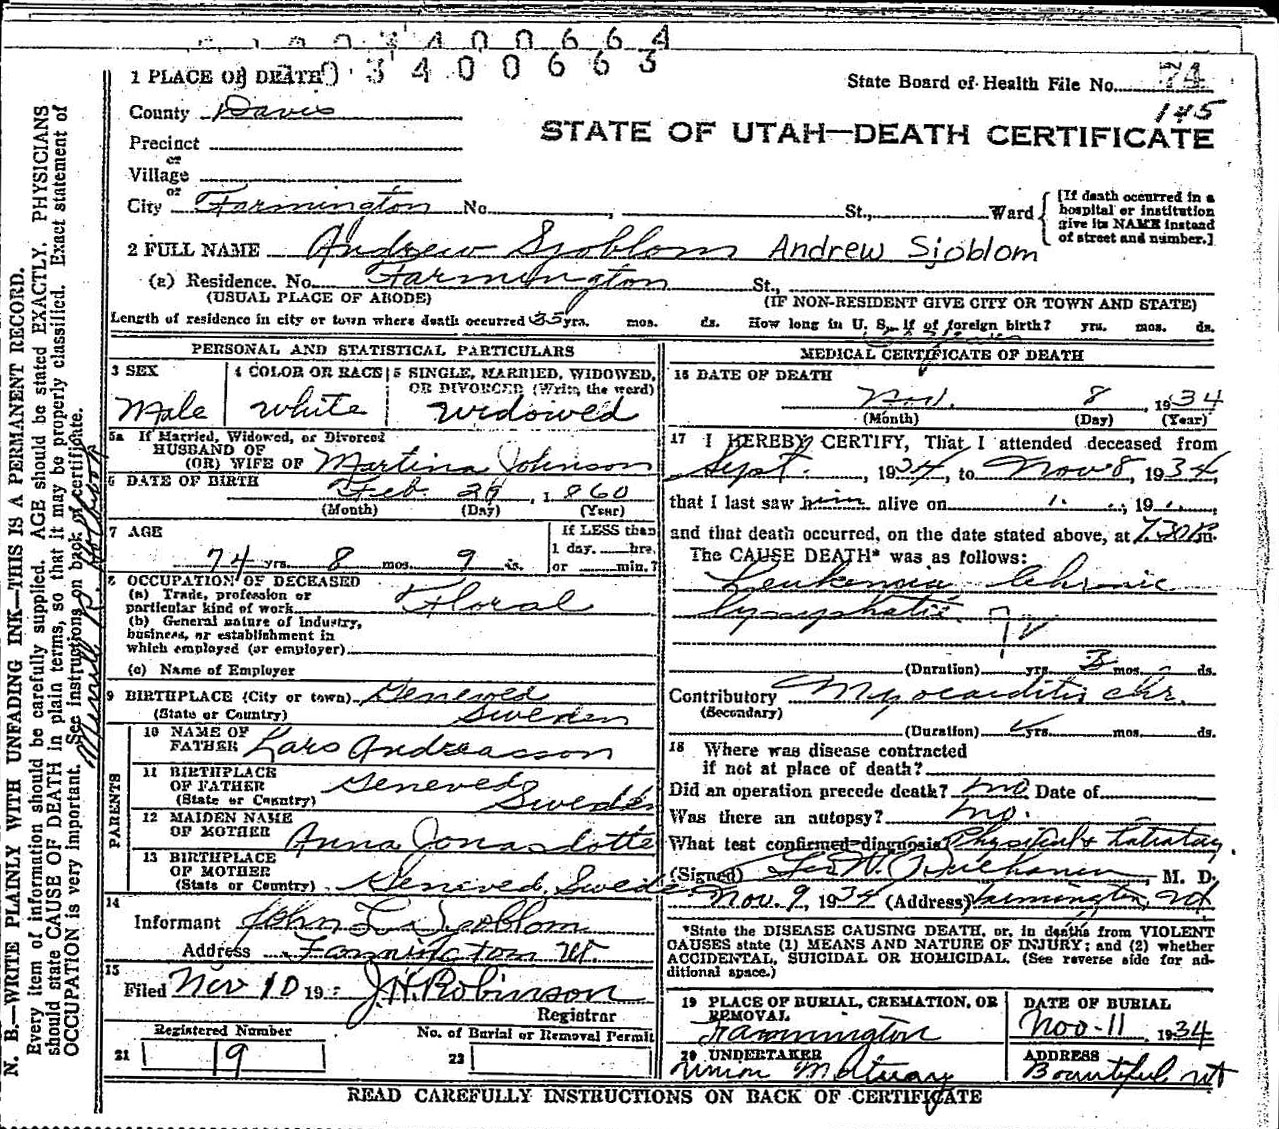 003400664
003400663
1 PLACE OF DEATH
State Board of Health File No. 74
145
County Davis
STATE OF UTAH—DEATH CERTIFICATE
Precinct
or
Village
or
City Farmington No. , St., Ward
[If death occurred in a hospital or institution give its NAME instead of street and number.]
2 FULL NAME Andrew Sjoblom Andrew Sjoblom
(a) Residence. No. Farmington St.,
(USUAL PLACE OF ABODE) (IF NON-RESIDENT GIVE CITY OR TOWN AND STATE)
Length of residence in city or town where death occurred 35 yrs. mos. ds. How long in U. S., if of foreign birth? yrs. mos. ds.
PERSONAL AND STATISTICAL PARTICULARS
3 SEX
Male
4 COLOR OR RACE
White
5 SINGLE, MARRIED, WIDOWED,
OR DIVORCED (Write the word)
Widowed
5a If Married, Widowed, or Divorced
HUSBAND OF
(OR) WIFE OF Martina Johnson
6 DATE OF BIRTH
Feb. 29, 1860
(Month) (Day) (Year)
7 AGE
74 yrs. 8 mos. 9 ds.
If LESS than
1 day. hrs.
or min.?
8 OCCUPATION OF DECEASED
(a) Trade, profession or
particular kind of work Floral
(b) General nature of Industry,
business, or establishment in
which employed (or employer)
(c) Name of Employer
9 BIRTHPLACE (City or town) Geneved
(State or Country) Sweden
PARENTS
10 NAME OF
FATHER Lars Andreasson
11 BIRTHPLACE
OF FATHER Geneved
(State or Country) Sweden
12 MAIDEN NAME
OF MOTHER Anna Jonasdotte
13 BIRTHPLACE
OF MOTHER
(State or Country) Geneved, Swede
14
Informant John L. Sjoblom
Address Farmington Ut.
15
Filed Nov 10 19 J H Robinson
Registrar
Registered Number
21 19
No. of Burial or Removal Permit
22
MEDICAL CERTIFICATE OF DEATH
16 DATE OF DEATH
Nov. 8 1934
(Month) (Day) (Year)
17 I HEREBY CERTIFY, That I attended deceased from
Sept. , 1934, to Nov 8, 1934,
that I last saw him alive on , 19 ,
and that death occurred, on the date stated above, at 7.30 P.m.
The CAUSE DEATH* was as follows:
Leukemia Chronic
lymphatic.
(Duration) yrs. 3 mos. ds.
Contributory Myocarditis chr.
(Secondary)
(Duration) yrs. mos. ds.
18 Where was disease contracted
if not at place of death?
Did an operation precede death? no Date of
Was there an autopsy? no.
What test confirmed diagnosis Physical &
(Signed) Geo W. , M. D.
Nov. 9, 1934 (Address) Farmington, Ut
*State the DISEASE CAUSING DEATH, or, in deaths from VIOLENT
CAUSES state (1) MEANS AND NATURE OF INJURY; and (2) whether
ACCIDENTAL, SUICIDAL OR HOMICIDAL. (See reverse side for ad-
ditional space.)
19 PLACE OF BURIAL, CREMATION, OR
REMOVAL
Farmington
DATE OF BURIAL
Nov-11 1934
20 UNDERTAKER
Union Mortuary
ADDRESS
Bountiful Ut
READ CAREFULLY INSTRUCTIONS ON BACK OF CERTIFICATE
N. B.—WRITE PLAINLY WITH UNFADING INK—THIS IS A PERMANENT RECORD.
Every item of information should be carefully supplied. AGE should be stated EXACTLY. PHYSICIANS
should state CAUSE OF DEATH in plain terms, so that it may be properly classified. Exact statement of
OCCUPATION is very important. See instructions on back of certificate.